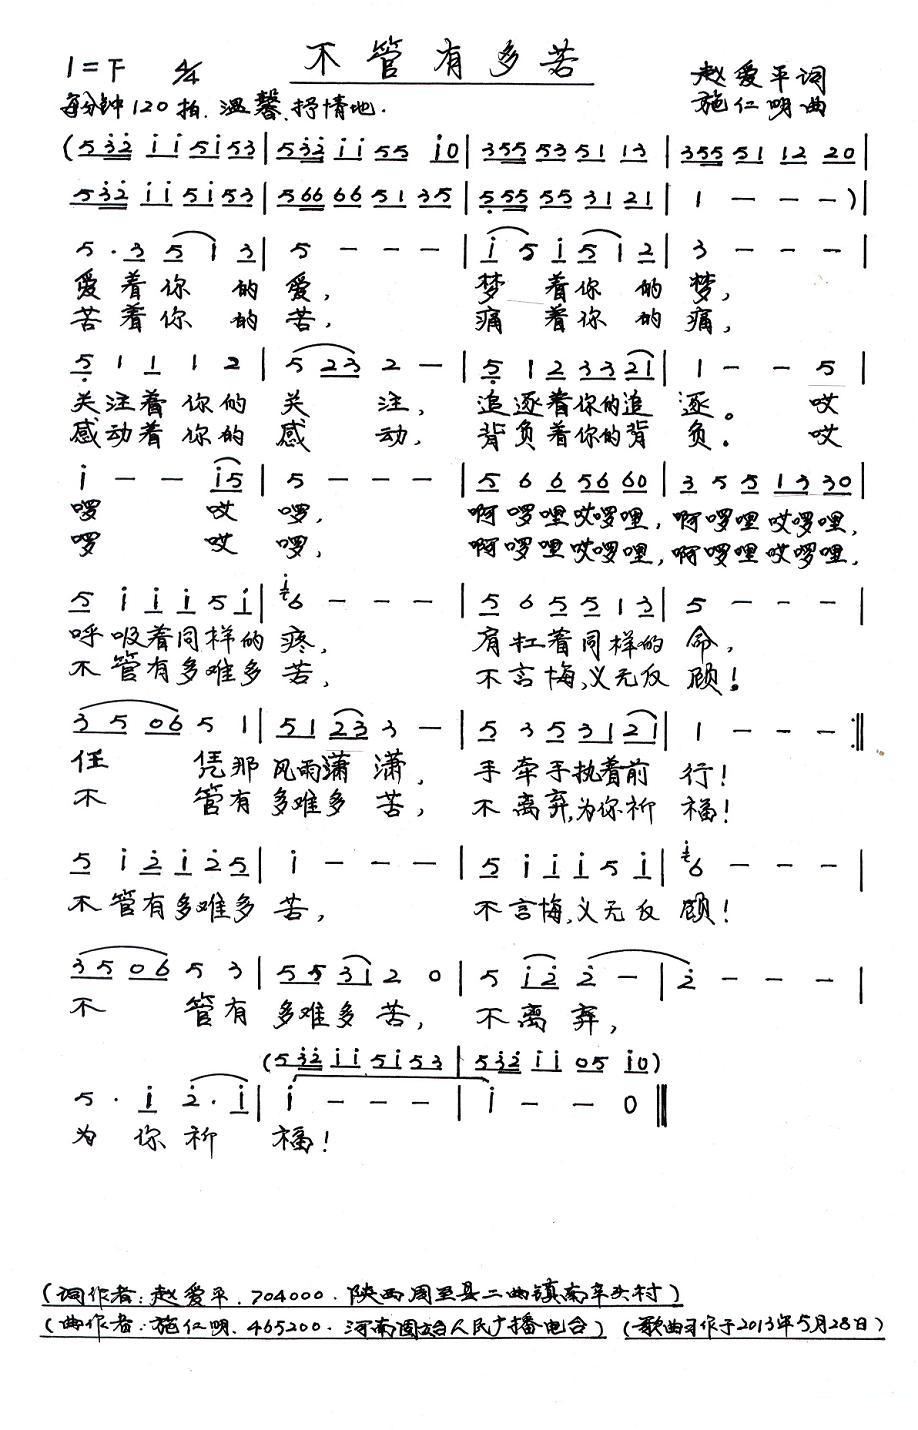 不管有多苦
1=F 4/4
赵爱平词
每分钟120拍.温馨、抒情地.
施仁明曲
(5 3̇2̇ i i 5 i 5 3 | 5 3̇2̇ i i 5 5 i 0 | 3 5 5 5 3 5 1 1 3 | 3 5 5 5 1 1 2 2 0 |
5 3̇2̇ i i 5 i 5 3 | 5 6 6 6 6 5 1 3 5 | 5̣ 5 5 5 5 3 1 2 1 | 1 - - - ) |
5 · 3 5 1 3 | 5 - - - | i 5 i 5 1 2 | 3 - - - |
爱着你的爱, 梦着你的梦,
苦着你的苦, 痛着你的痛,
5̣ 1 1 1 2 | 5 2 3 2 - | 5̣ 1 2 3 3 2 1 | 1 - - 5 |
关注着你的关注, 追逐着你的追逐。哎
感动着你的感动, 背负着你的背负. 哎
i - - i 5 | 5 - - - | 5 6 6 5 6 6 0 | 3 5 5 1 3 3 0 |
啰 哎啰, 啊啰哩哎啰哩, 啊啰哩哎啰哩,
啰 哎啰, 啊啰哩哎啰哩, 啊啰哩哎啰哩,
5 i i i 5 i | i 6 - - - | 5 6 5 5 1 3 | 5 - - - |
呼吸着同样的疼, 肩扛着同样的命,
不管有多难多苦, 不言悔,义无反顾!
3 5 0 6 5 1 | 5 1 2 3 3 - | 5 3 5 3 1 2 1 | 1 - - - :‖
任凭那风雨潇潇, 手牵手执着前行!
不管有多难多苦, 不离弃,为你祈福!
5 i 2̇ i 2̇ 5 | i - - - | 5 i i i 5 i | i 6 - - - |
不管有多难多苦, 不言悔,义无反顾!
3 5 0 6 5 3 | 5 5 3 1 2 0 | 5 i 2̇ 2̇ - | 2̇ - - - |
不管有多难多苦, 不离弃,
(5 3̇2̇ i i 5 i 5 3 | 5 3̇2̇ i i 0 5 i 0)
5 · i 2̇ · i | i - - - | i - - 0 ‖
为你祈福!
(词作者:赵爱平.704000.陕西周至县二曲镇南辛头村)
(曲作者:施仁明.465200.河南固始人民广播电台) (歌曲习作于2013年5月28日)